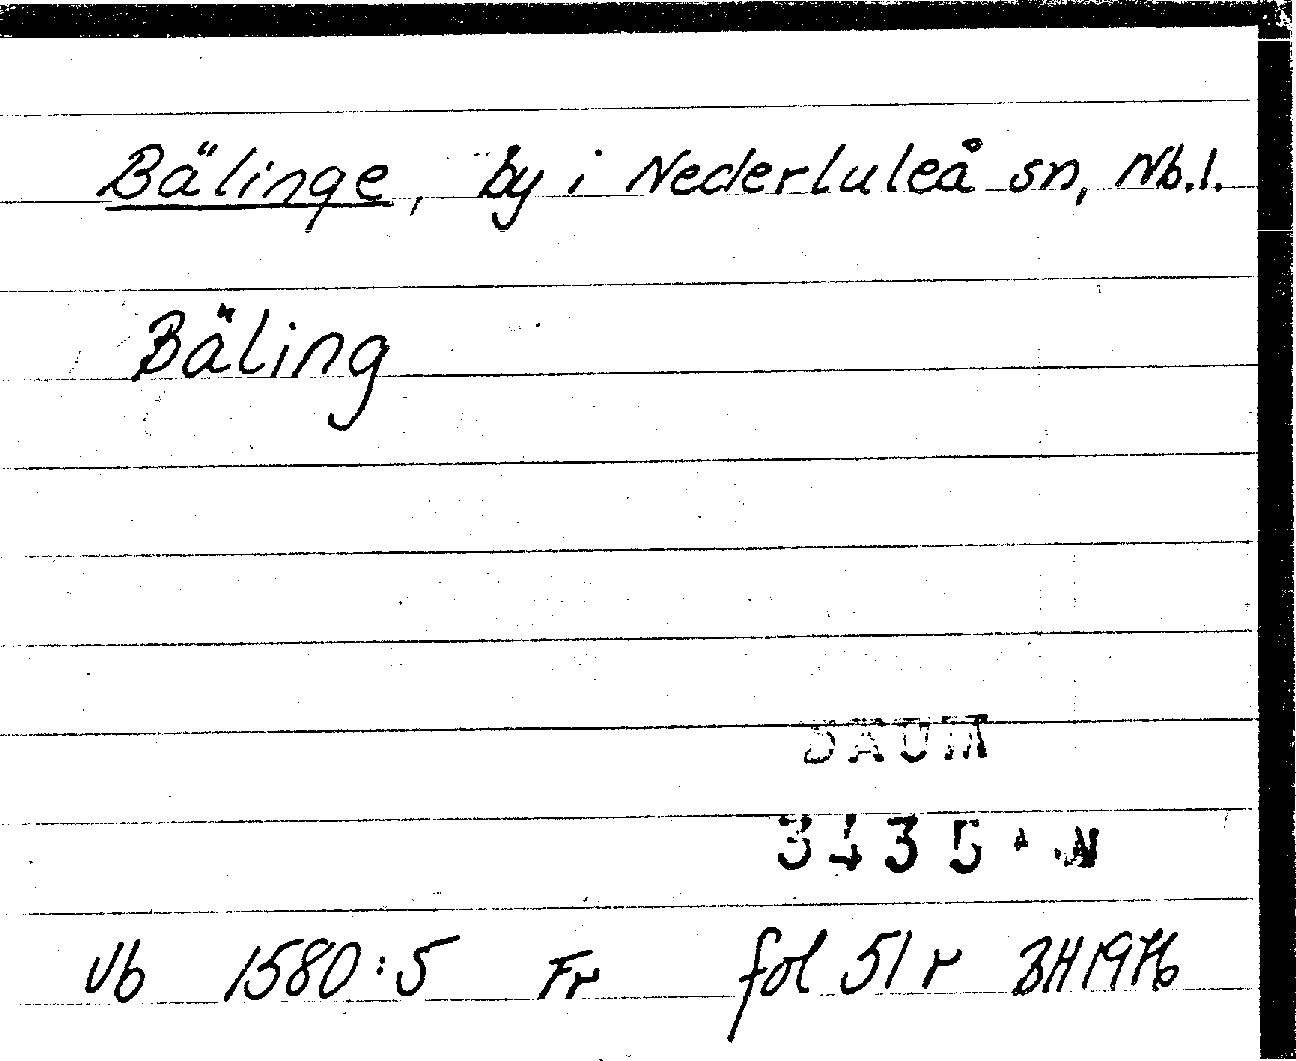 Bälinge, by i Nederluleå sn, Nb.l.
Bäling
DAUM
3435
Vb 1580:5 Fr fol 51 r BH 1976